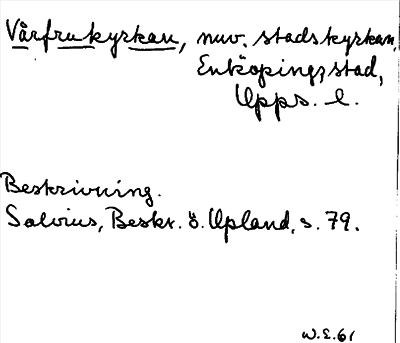 Vårfrukyrkan, nuv. stadskyrkan,
Enköpings stad,
Upps. l.
Beskrivning.
Salvius, Beskr. ö. Upland, s. 79.
W.E. 61